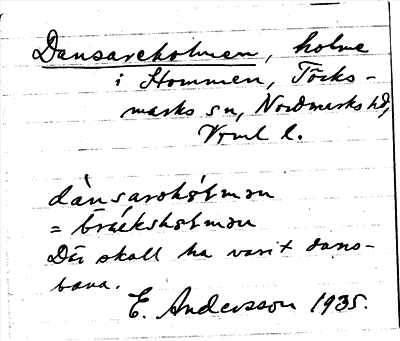 Dansareholmen, holme
i Hommen, Töcks-
marks sn, Nordmarks hd,
Vrml l.
dànsarohòłmən
= bráeksholmən
Där skall ha varit dans-
bana.
E. Andersson 1935.